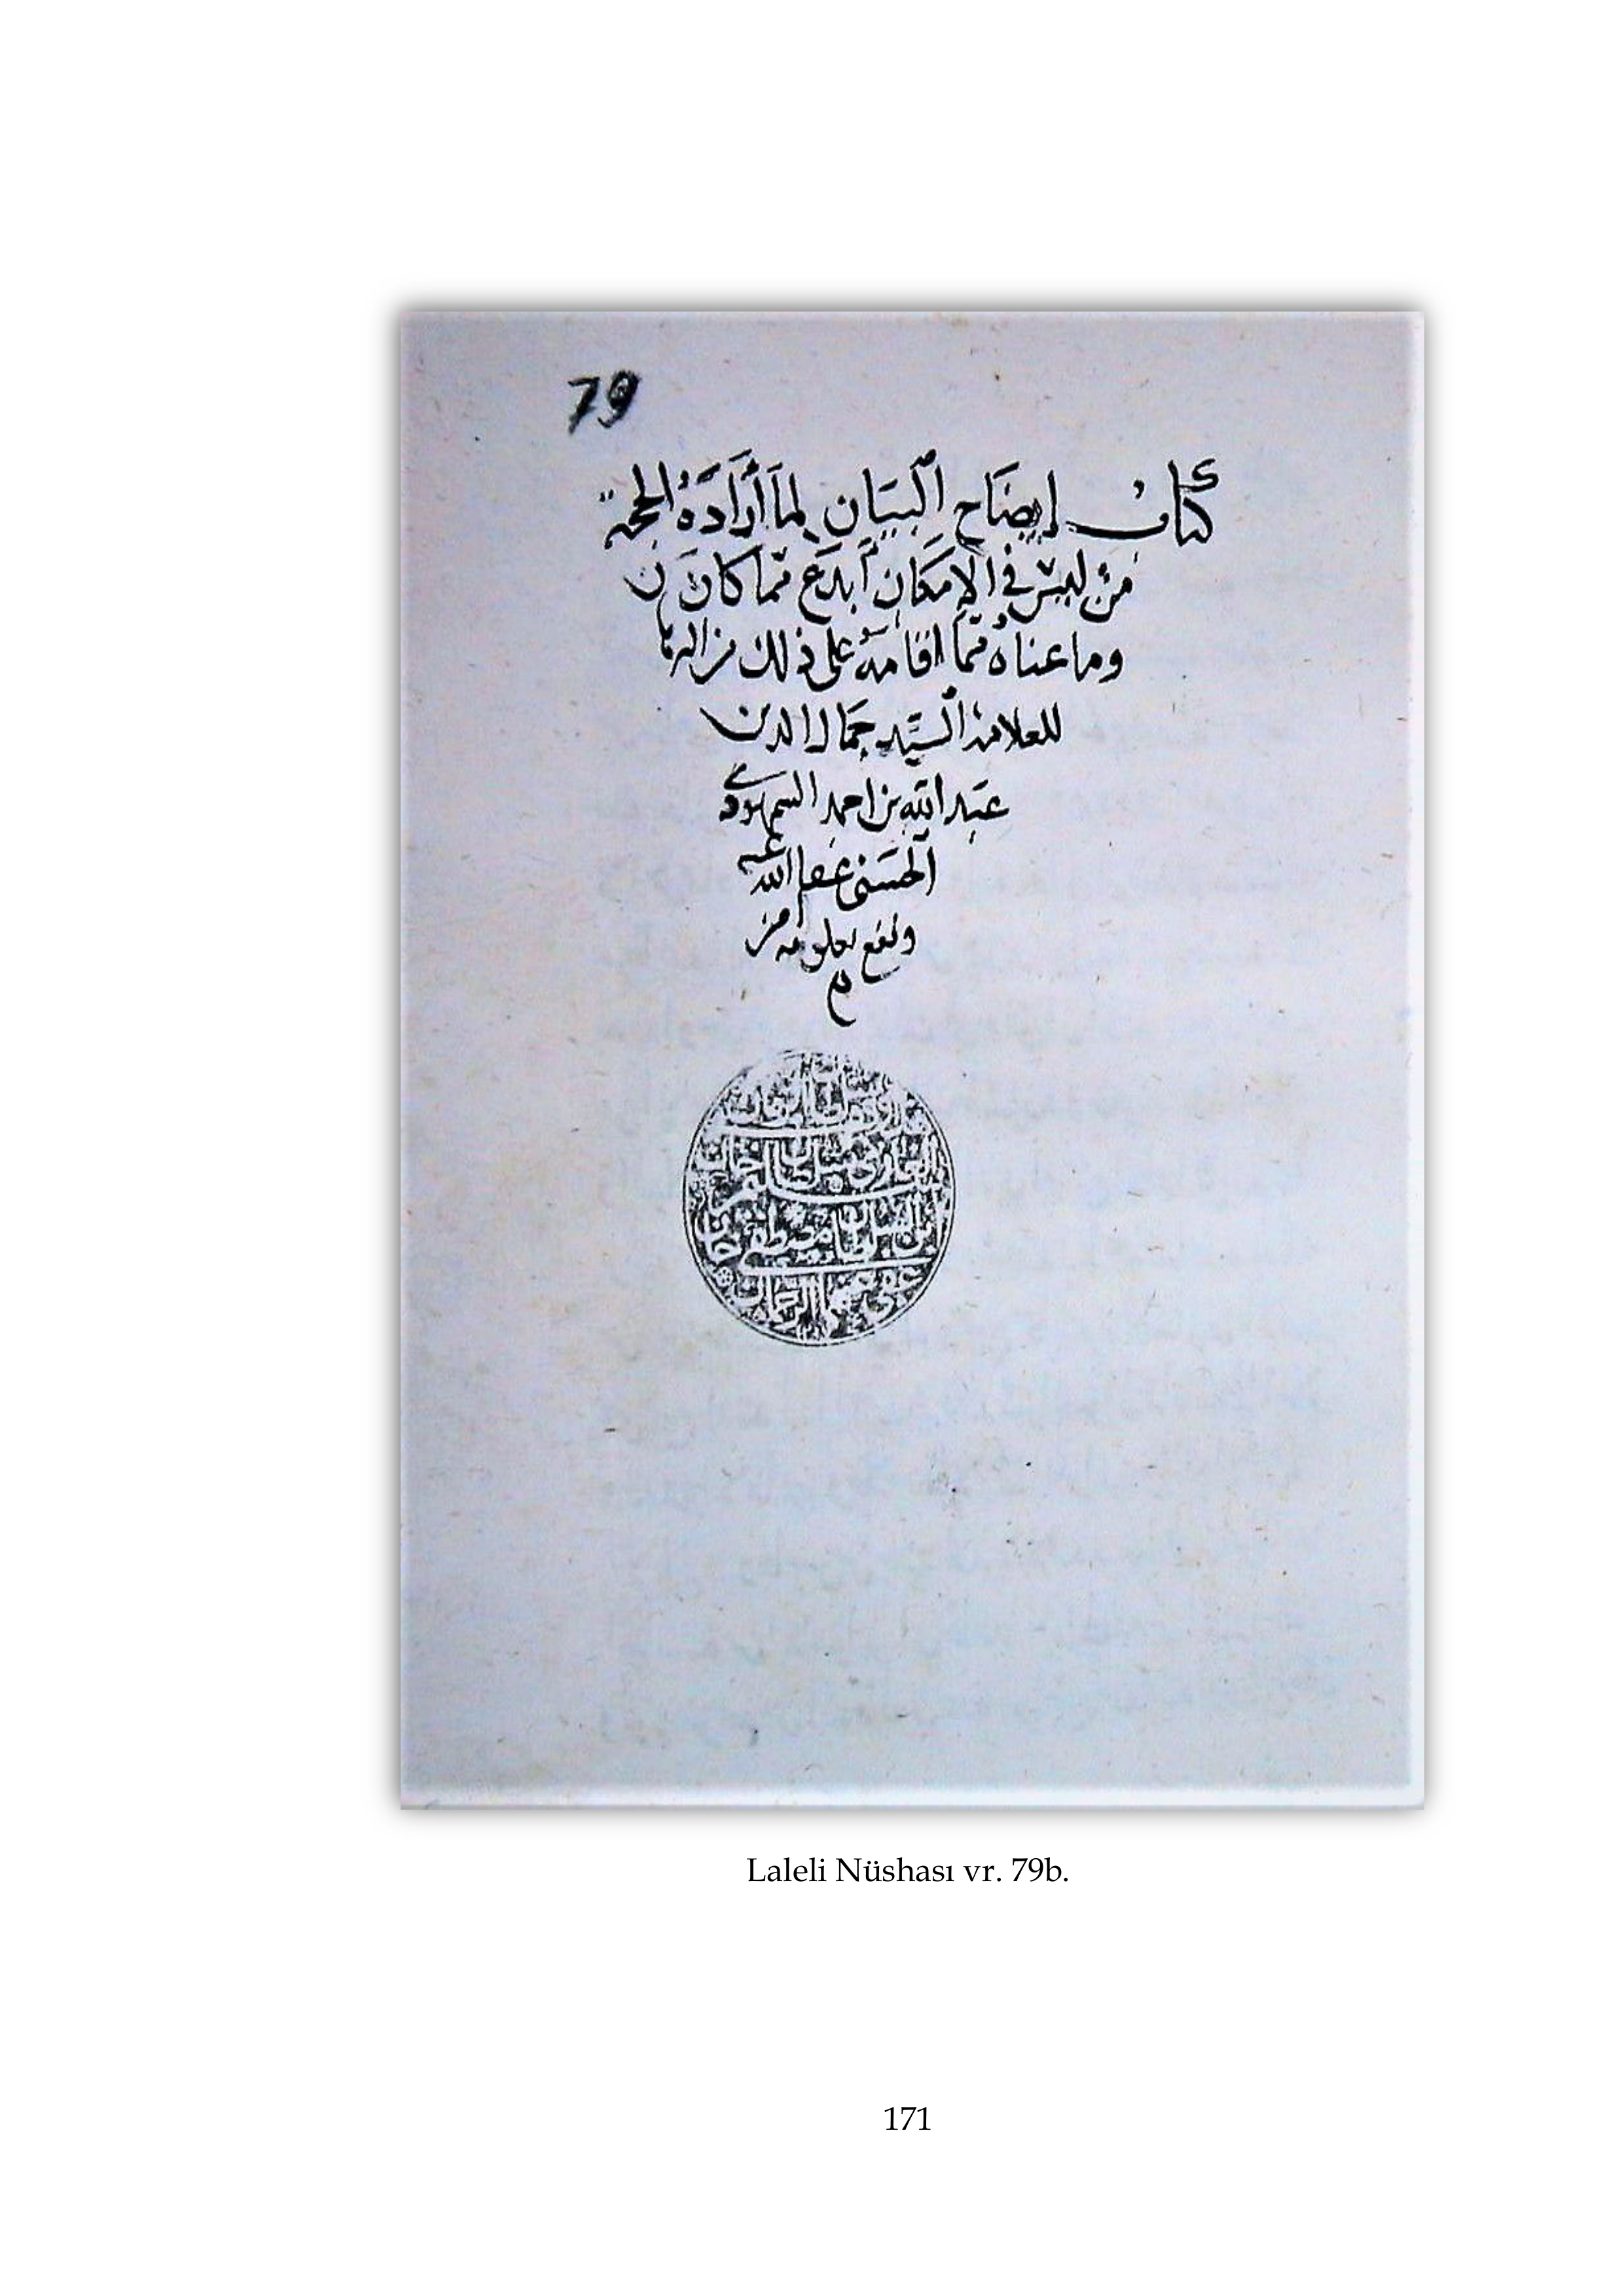 79
كتاب إيضَاح ٱلبيَان لِمَا أَرَادَهُ الحجة
مِنْ ليسَ في الإمكَان أَبدَع مّما كانَ
وما عناهُ ممّا اقامَهُ على ذلك من البرها
للعلامة ٱلسَّيّد جمَال الدين
عبَد الله بن احمد السمهودي
ٱلحسَنى عفا الله عنه
ونفع بعلومه من
ابن السلطان مصطفى خان
Laleli Nüshası vr. 79b.
171